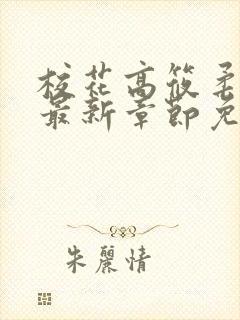 校花高筱柔
最新章節免
朱麗情